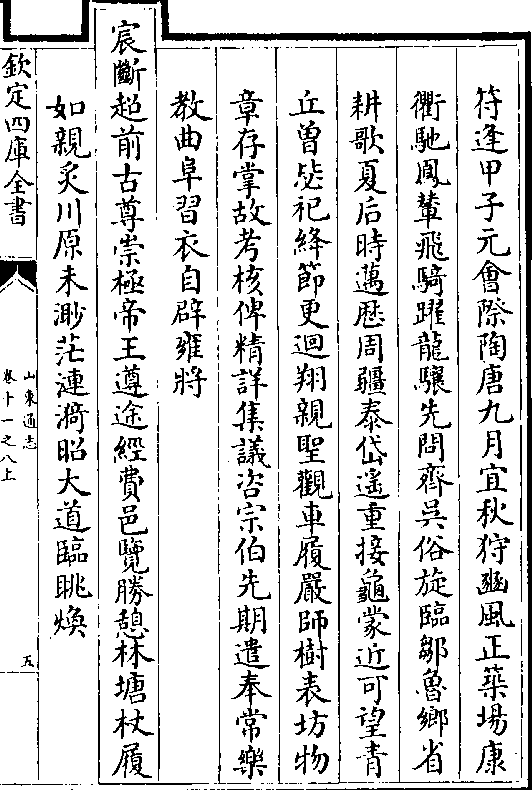 符逢甲子元會際陶唐九月宜秋狩豳風正築場康
衢馳鳳輦飛騎躍龍驤先問齊吳俗旋臨鄒魯鄉省
耕歌夏后時邁歴周疆泰岱遙重接龜蒙近可望青
丘曽毖祀絳節更迴翔親聖觀車履嚴師樹表坊物
章存掌故考核俾精詳集議咨宗伯先期遣奉常樂
教曲阜習衣自辟雍將
宸斷超前古尊崇極帝王遵途經費邑覽勝憩林塘杖履
如親炙川原未渺茫漣漪昭大道臨眺煥
欽定四庫全書
山東通志
卷十一之八上
五